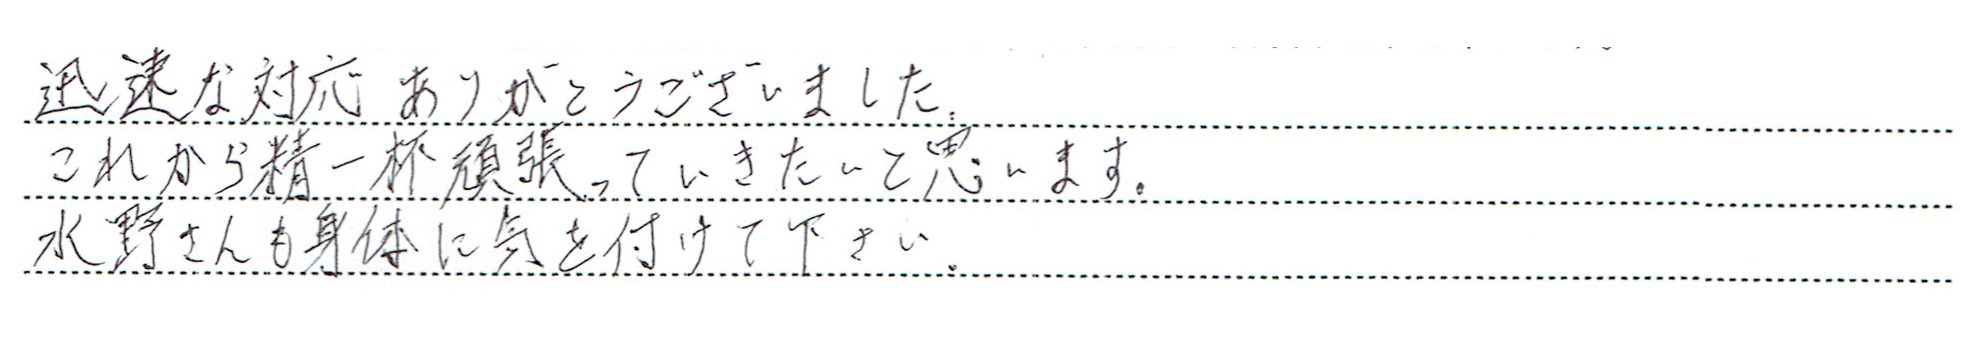 迅速な対応ありがとうございました。
これから精一杯頑張っていきたいと思います。
水野さんも身体に気を付けて下さい。